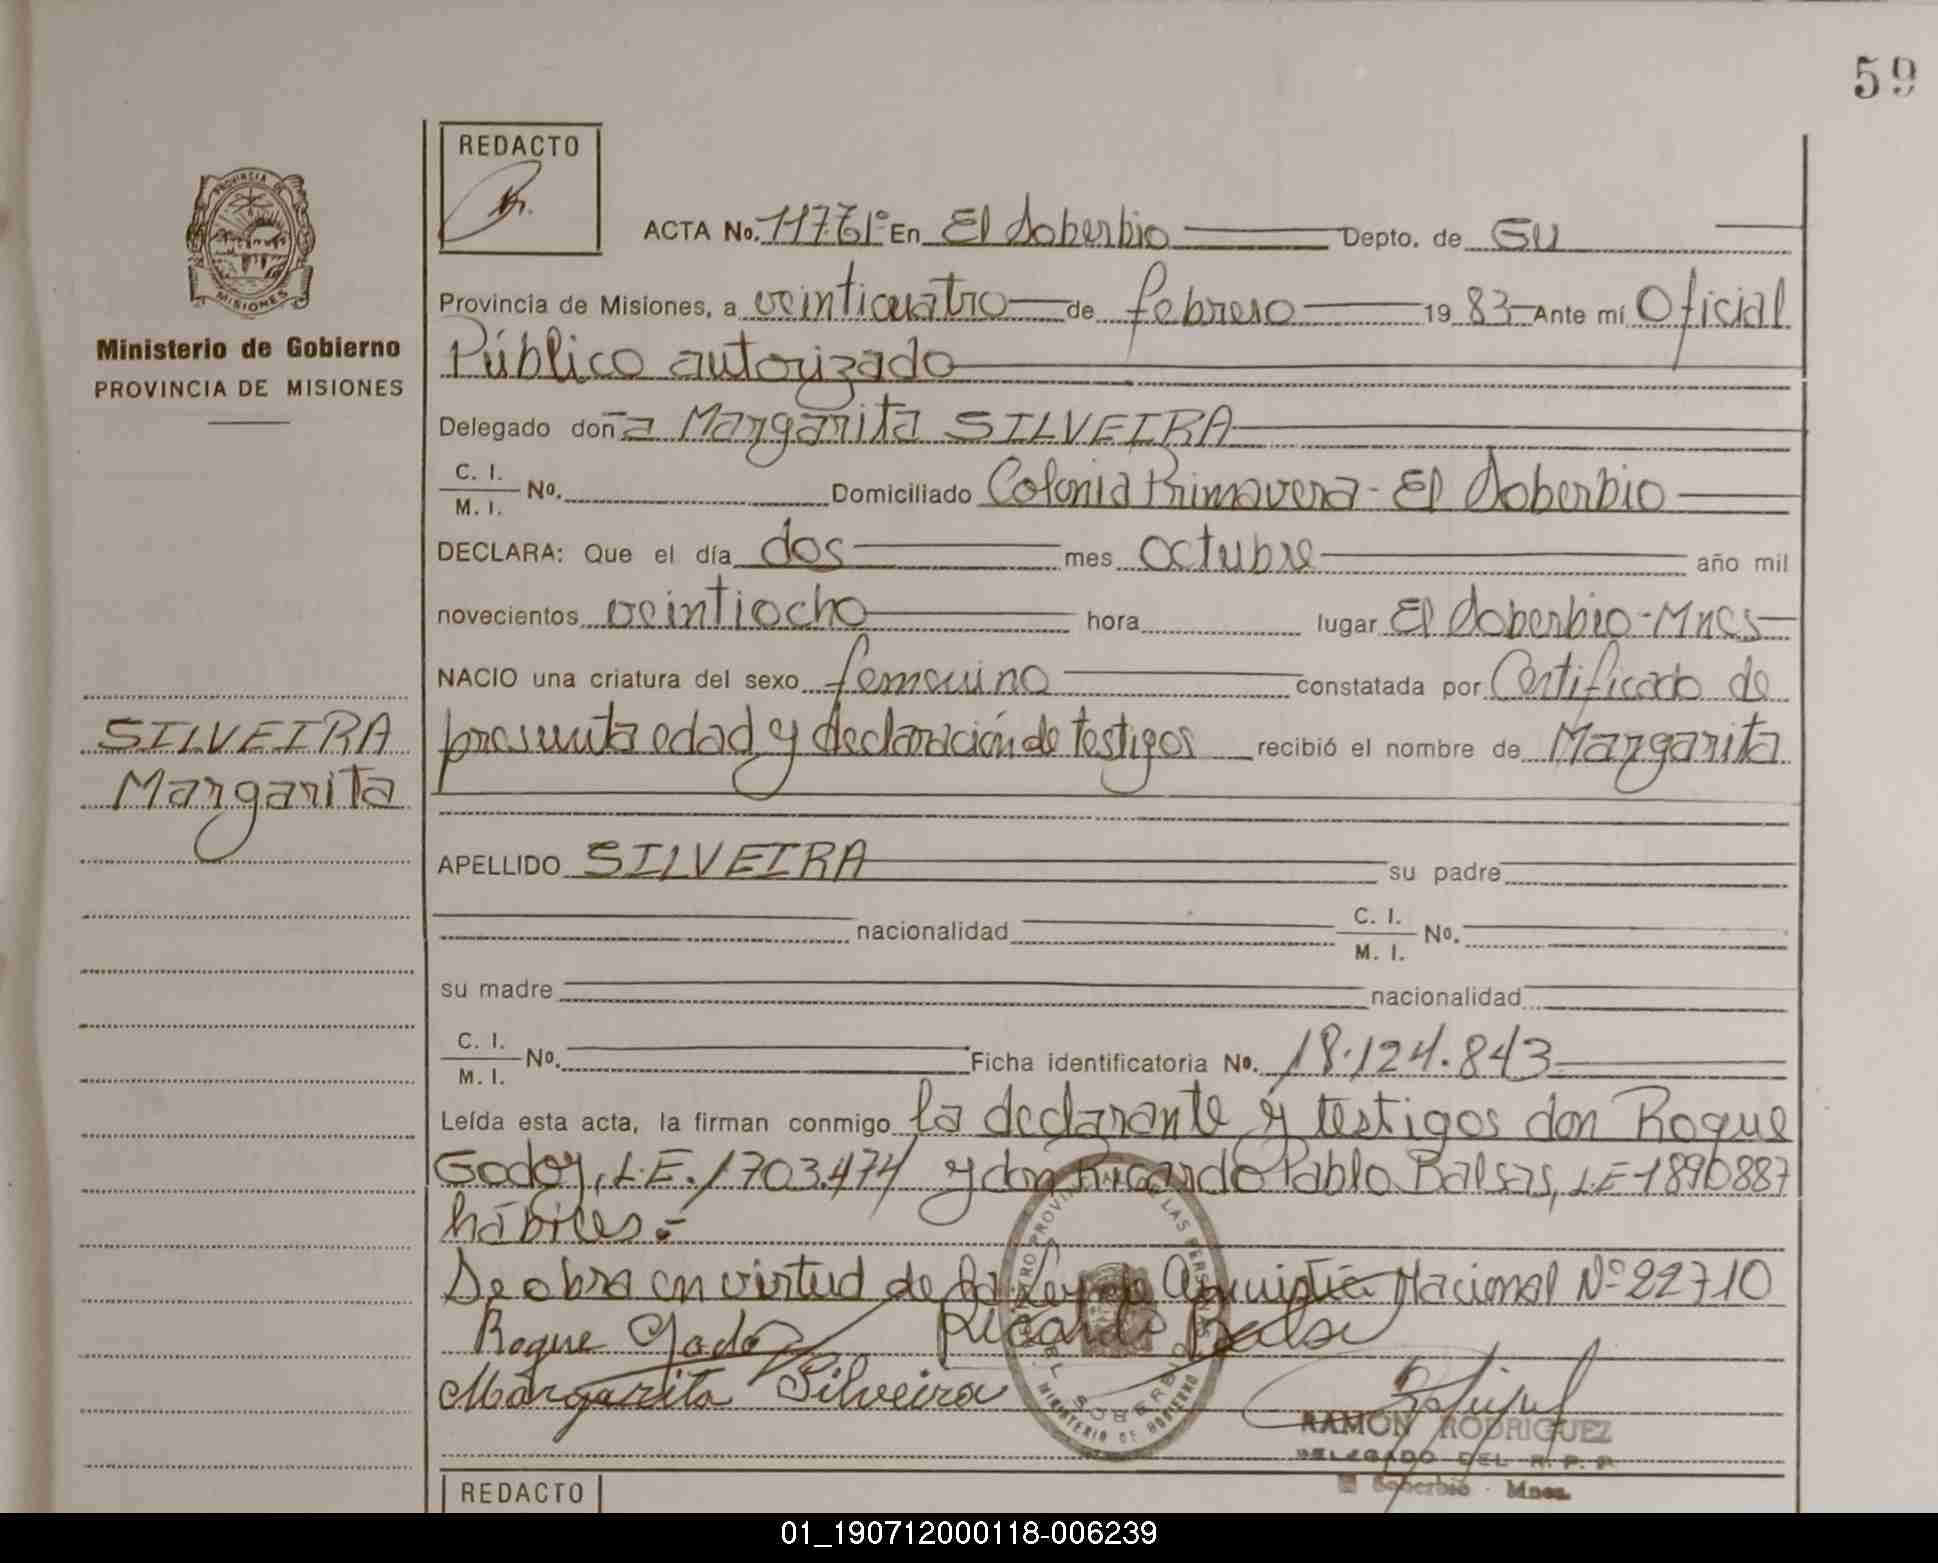 59
REDACTO
ACTA No. En El Soberbio Depto. de GU
Provincia de Misiones, a veinticuatro de febrero 1983 Ante mí Oficial
Público autorizado
Delegado doña Margarita SILVEIRA
C. I.
M. I. No. Domiciliado Colonia Primavera - El Soberbio
DECLARA: Que el día dos mes octubre año mil
novecientos veintiocho hora lugar El Soberbio - Mnes
NACIO una criatura del sexo femenino constatada por Certificado de
presunta edad y declaración de testigos recibió el nombre de Margarita
APELLIDO SILVEIRA su padre
nacionalidad C. I.
M. I. No.
su madre nacionalidad
C. I.
M. I. No. Ficha identificatoria No. 18.124.843
Leída esta acta, la firman conmigo la declarante y testigos don Roque
Godoy, L.E. 1703.474 y don Ricardo Pablo Balsas, L E 1890887
hábiles.-
Se obra en virtud de la Ley de Amnistia Nacional Nº 22710
Roque Godoy Ricardo
Margarita Silveira
RAMON RODRIGUEZ
DELEGADO DEL R. P. P.
Soberbio - Mnes.
REDACTO
PROVINCIA DE
MISIONES
Ministerio de Gobierno
PROVINCIA DE MISIONES
SILVEIRA
Margarita
EL SOBERBIO
MINISTERIO DE GOBIERNO
01_190712000118-006239